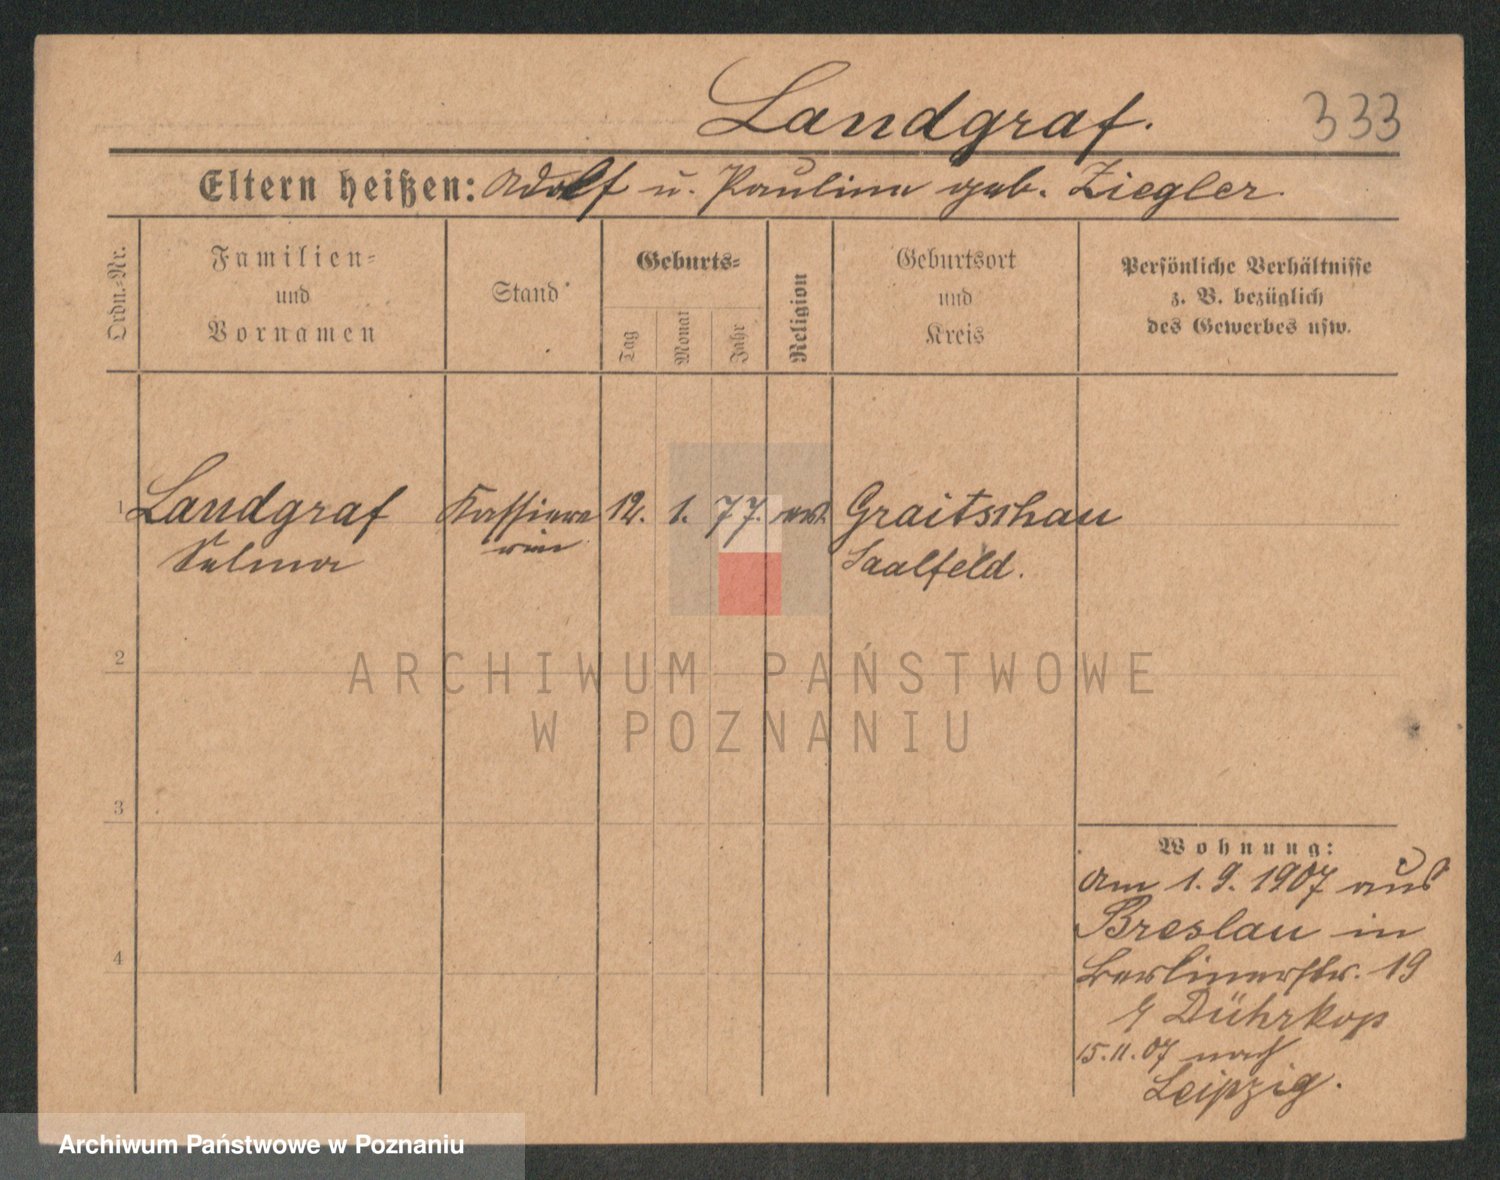 Landgraf.
333
Eltern heißen: Adolf u. Pauline geb. Ziegler.
Ordn.-Nr.
Familien-
und
Vornamen
Stand
Geburts-
Tag
Monat
Jahr
Religion
Geburtsort
und
Kreis
Persönliche Verhältnisse
z. B. bezüglich
des Gewerbes usw.
1 Landgraf Kassiere 12. 1. 77. ev. Graitschau
Selma rin Saalfeld.
2
ARCHIWUM PAŃSTWOWE
W POZNANIU
3
Wohnung:
am 1.9.1907 aus
Breslau in
4
Berlinerstr. 19
Dührkop
15.11.07 nach
Leipzig.
Archiwum Państwowe w Poznaniu